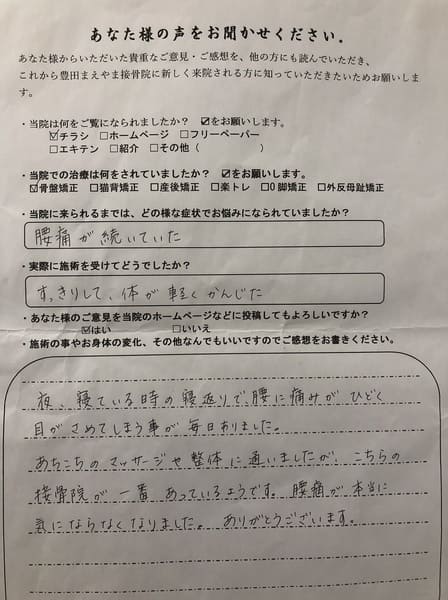 あなた様の声をお聞かせください.
あなた様からいただいた貴重なご意見・ご感想を、他の方にも読んでいただき、
これから豊田まえやま接骨院に新しく来院される方に知っていただきたいためお願いしま
す。
・当院は何をご覧になられましたか? ☑をお願いします。
☑チラシ □ホームページ □フリーペーパー
□エキテン □紹介 □その他( )
・当院での治療は何をされていましたか? ☑をお願いします。
☑骨盤矯正 □猫背矯正 □産後矯正 □楽トレ □O脚矯正 □外反母趾矯正
・当院に来られるまでは、どの様な症状でお悩みになられていましたか?
腰痛が続いていた
・実際に施術を受けてどうでしたか?
すっきりして、体が軽くかんじた
・あなた様のご意見を当院のホームページなどに投稿してもよろしいですか?
☑はい □いいえ
・施術の事やお身体の変化、その他なんでもいいですのでご感想をお書きください。
夜、寝ている時の寝返りで、腰に痛みがひどく
目がさめてしまう事が毎日ありました。
あちこちのマッサージや整体に通いましたが、こちらの
接骨院が一番あっているようです。腰痛が本当に
気にならなくなりました。ありがとうございます。